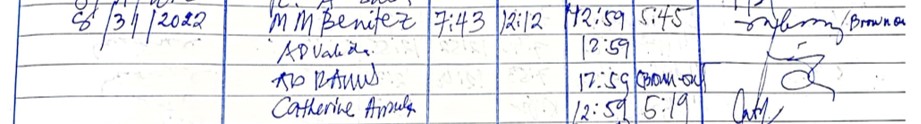 8/31/2022 MM Benitez 7:43 12:12 12:59 5:45 /Brown ou
AD Valida. 12:59
AD RAMOS 12:59 (Brown-out
Catherine 12:59 5:19